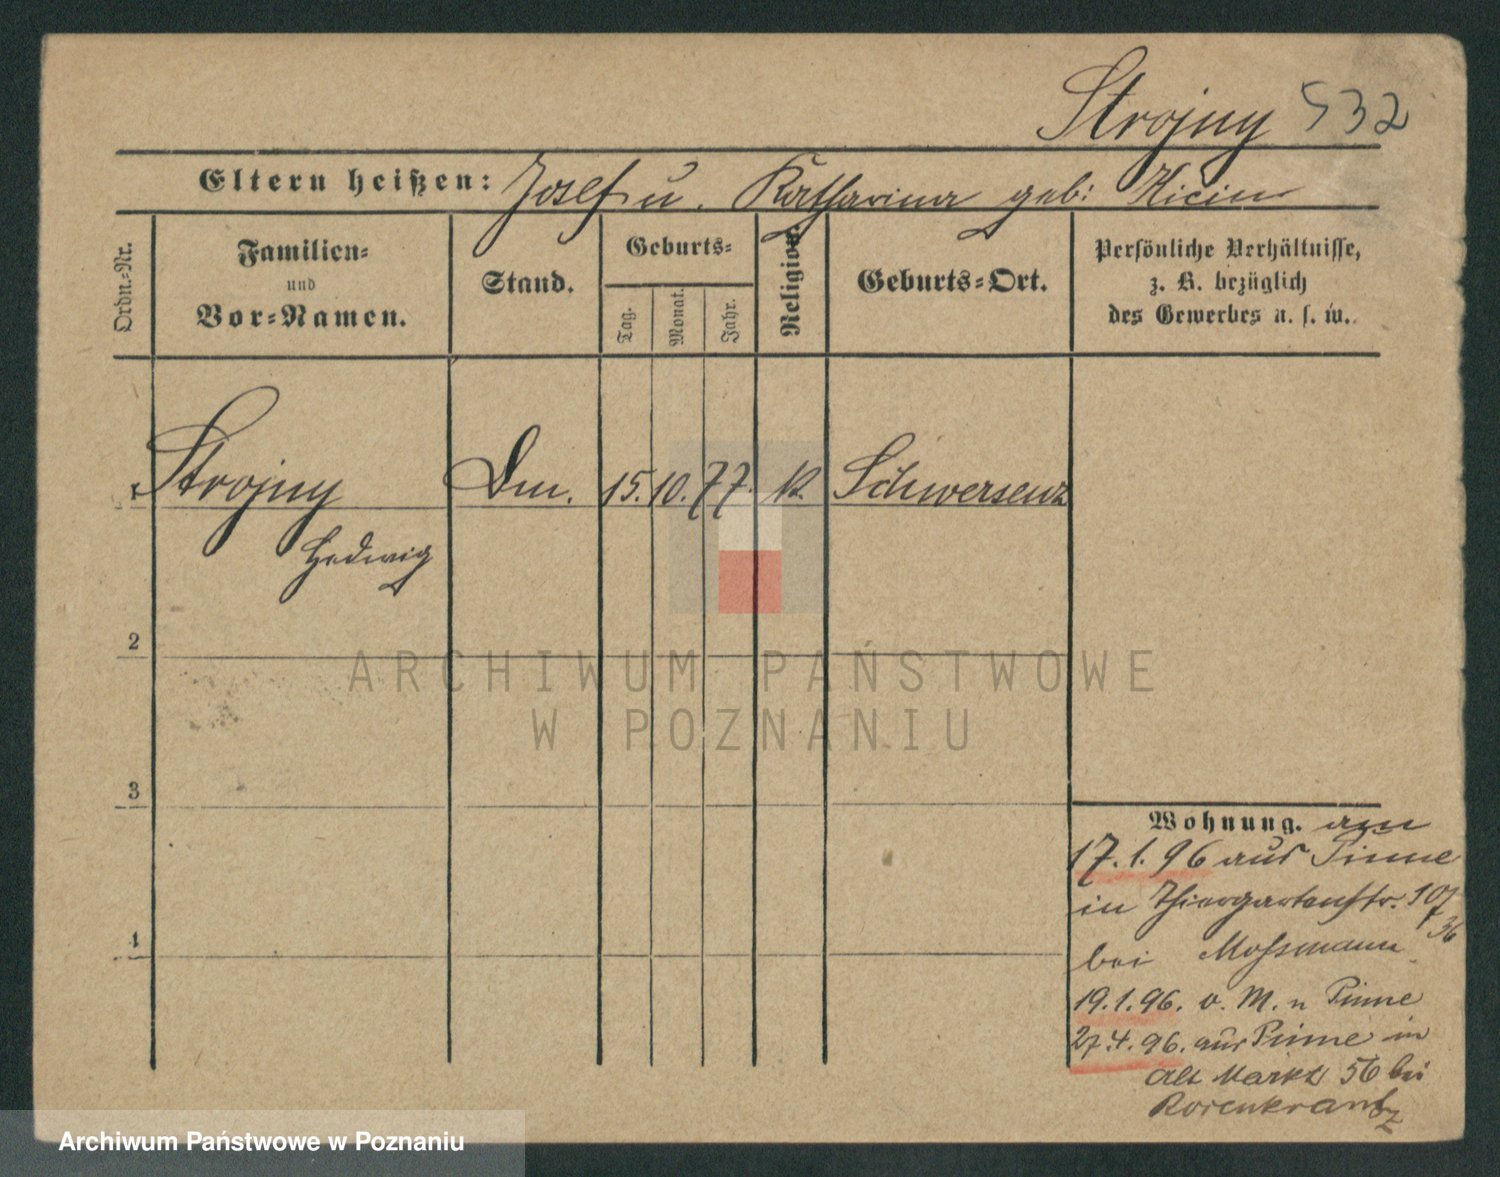 Strojny 532
Eltern heißen: Josef u. Katharina geb:
Ordn.-Nr.
Familien-
und
Vor-Namen.
Stand.
Geburts-
Tag.
Monat.
Jahr.
Religion.
Geburts-Ort.
Persönliche Verhältnisse,
z. B. bezüglich
des Gewerbes u. s. w.
1 Strojny Dm. 15. 10. 77. k. Schwersenz
Hedwig
2
3
4
ARCHIWUM PAŃSTWOWE
W POZNANIU
Wohnung. am
17.1.96 aus Pinne
in Thiergartenstr. 107
36
bei Mossmann
19.1.96. v. M. n Pinne
27.4.96. aus Pinne in
Alt Markt 56 bei
Rosenkrantz
Archiwum Państwowe w Poznaniu